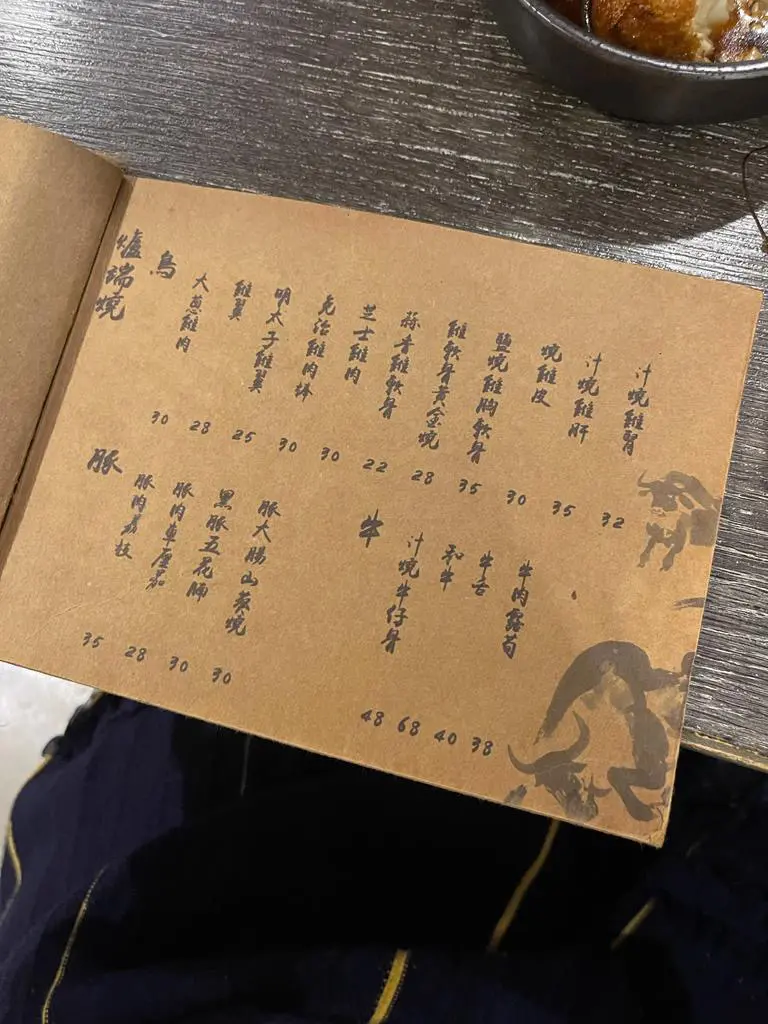 爐端燒
鳥
大蔥雞肉 30
雞翼 28
明太子雞翼 25
免治雞肉棒 30
芝士雞肉 30
蒜香雞軟骨 22
雞軟骨黃金燒 28
鹽燒雞胸軟骨 35
燒雞皮 30
汁燒雞肝 35
汁燒雞腎 32
豚
豚肉荔枝 35
豚肉車厘茄 28
黑豚五花腩 30
豚大腸山葵燒 30
牛
汁燒牛仔骨 48
和牛 68
牛舌 40
牛肉露荀 38